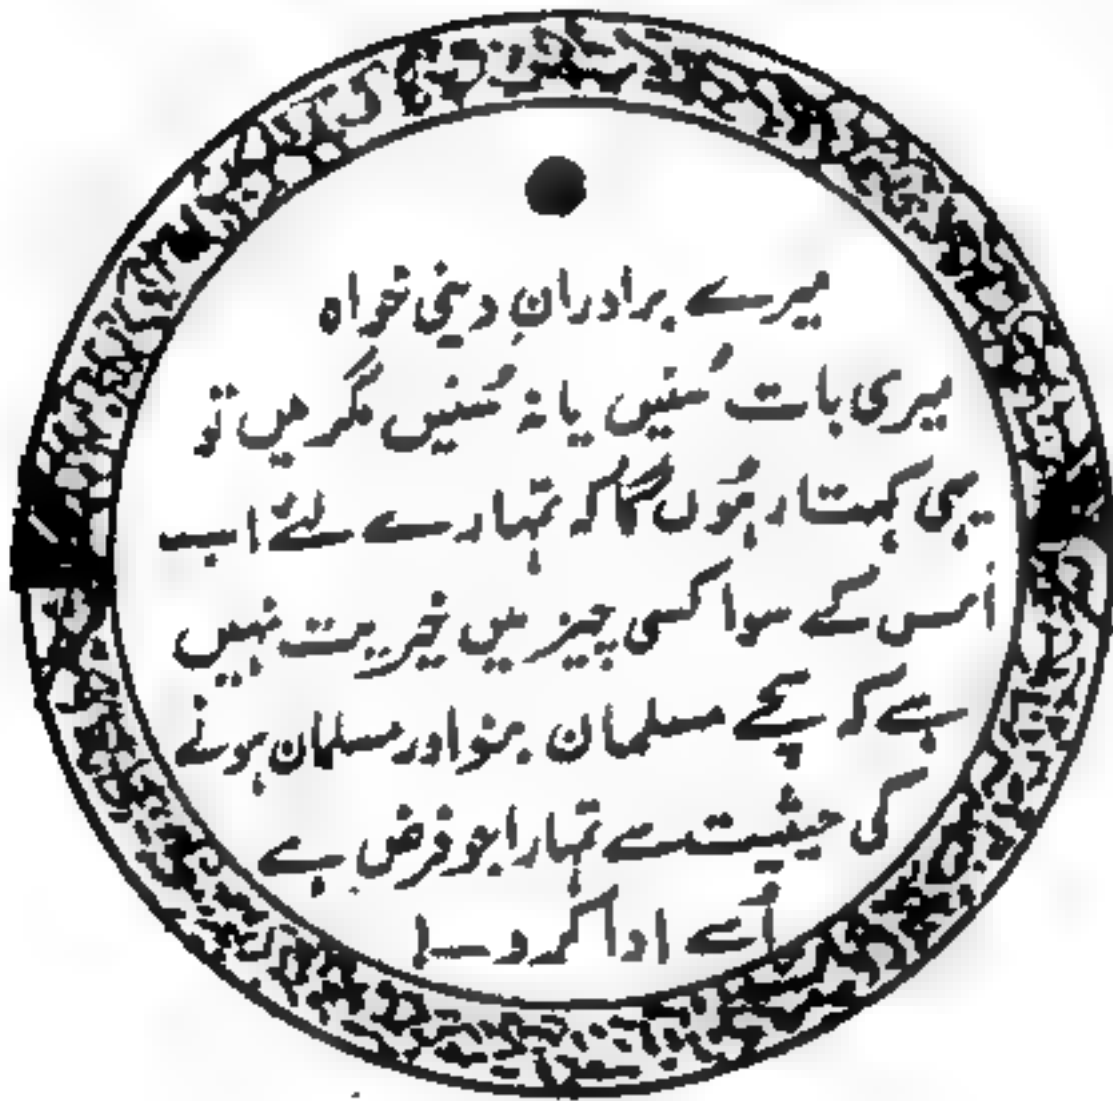 میرے برادرانِ دینی خواہ
میری بات سُنیں یا نہ سُنیں مگر میں تو
یہی کہتا رہُوں گا کہ تمہارے لئے اب
اُس کے سوا کسی چیز میں خیریت نہیں
ہے کہ سچے مسلمان بنو اور مسلمان ہونے
کی حیثیت سے تمہارا جو فرض ہے
اُسے ادا کرو۔!